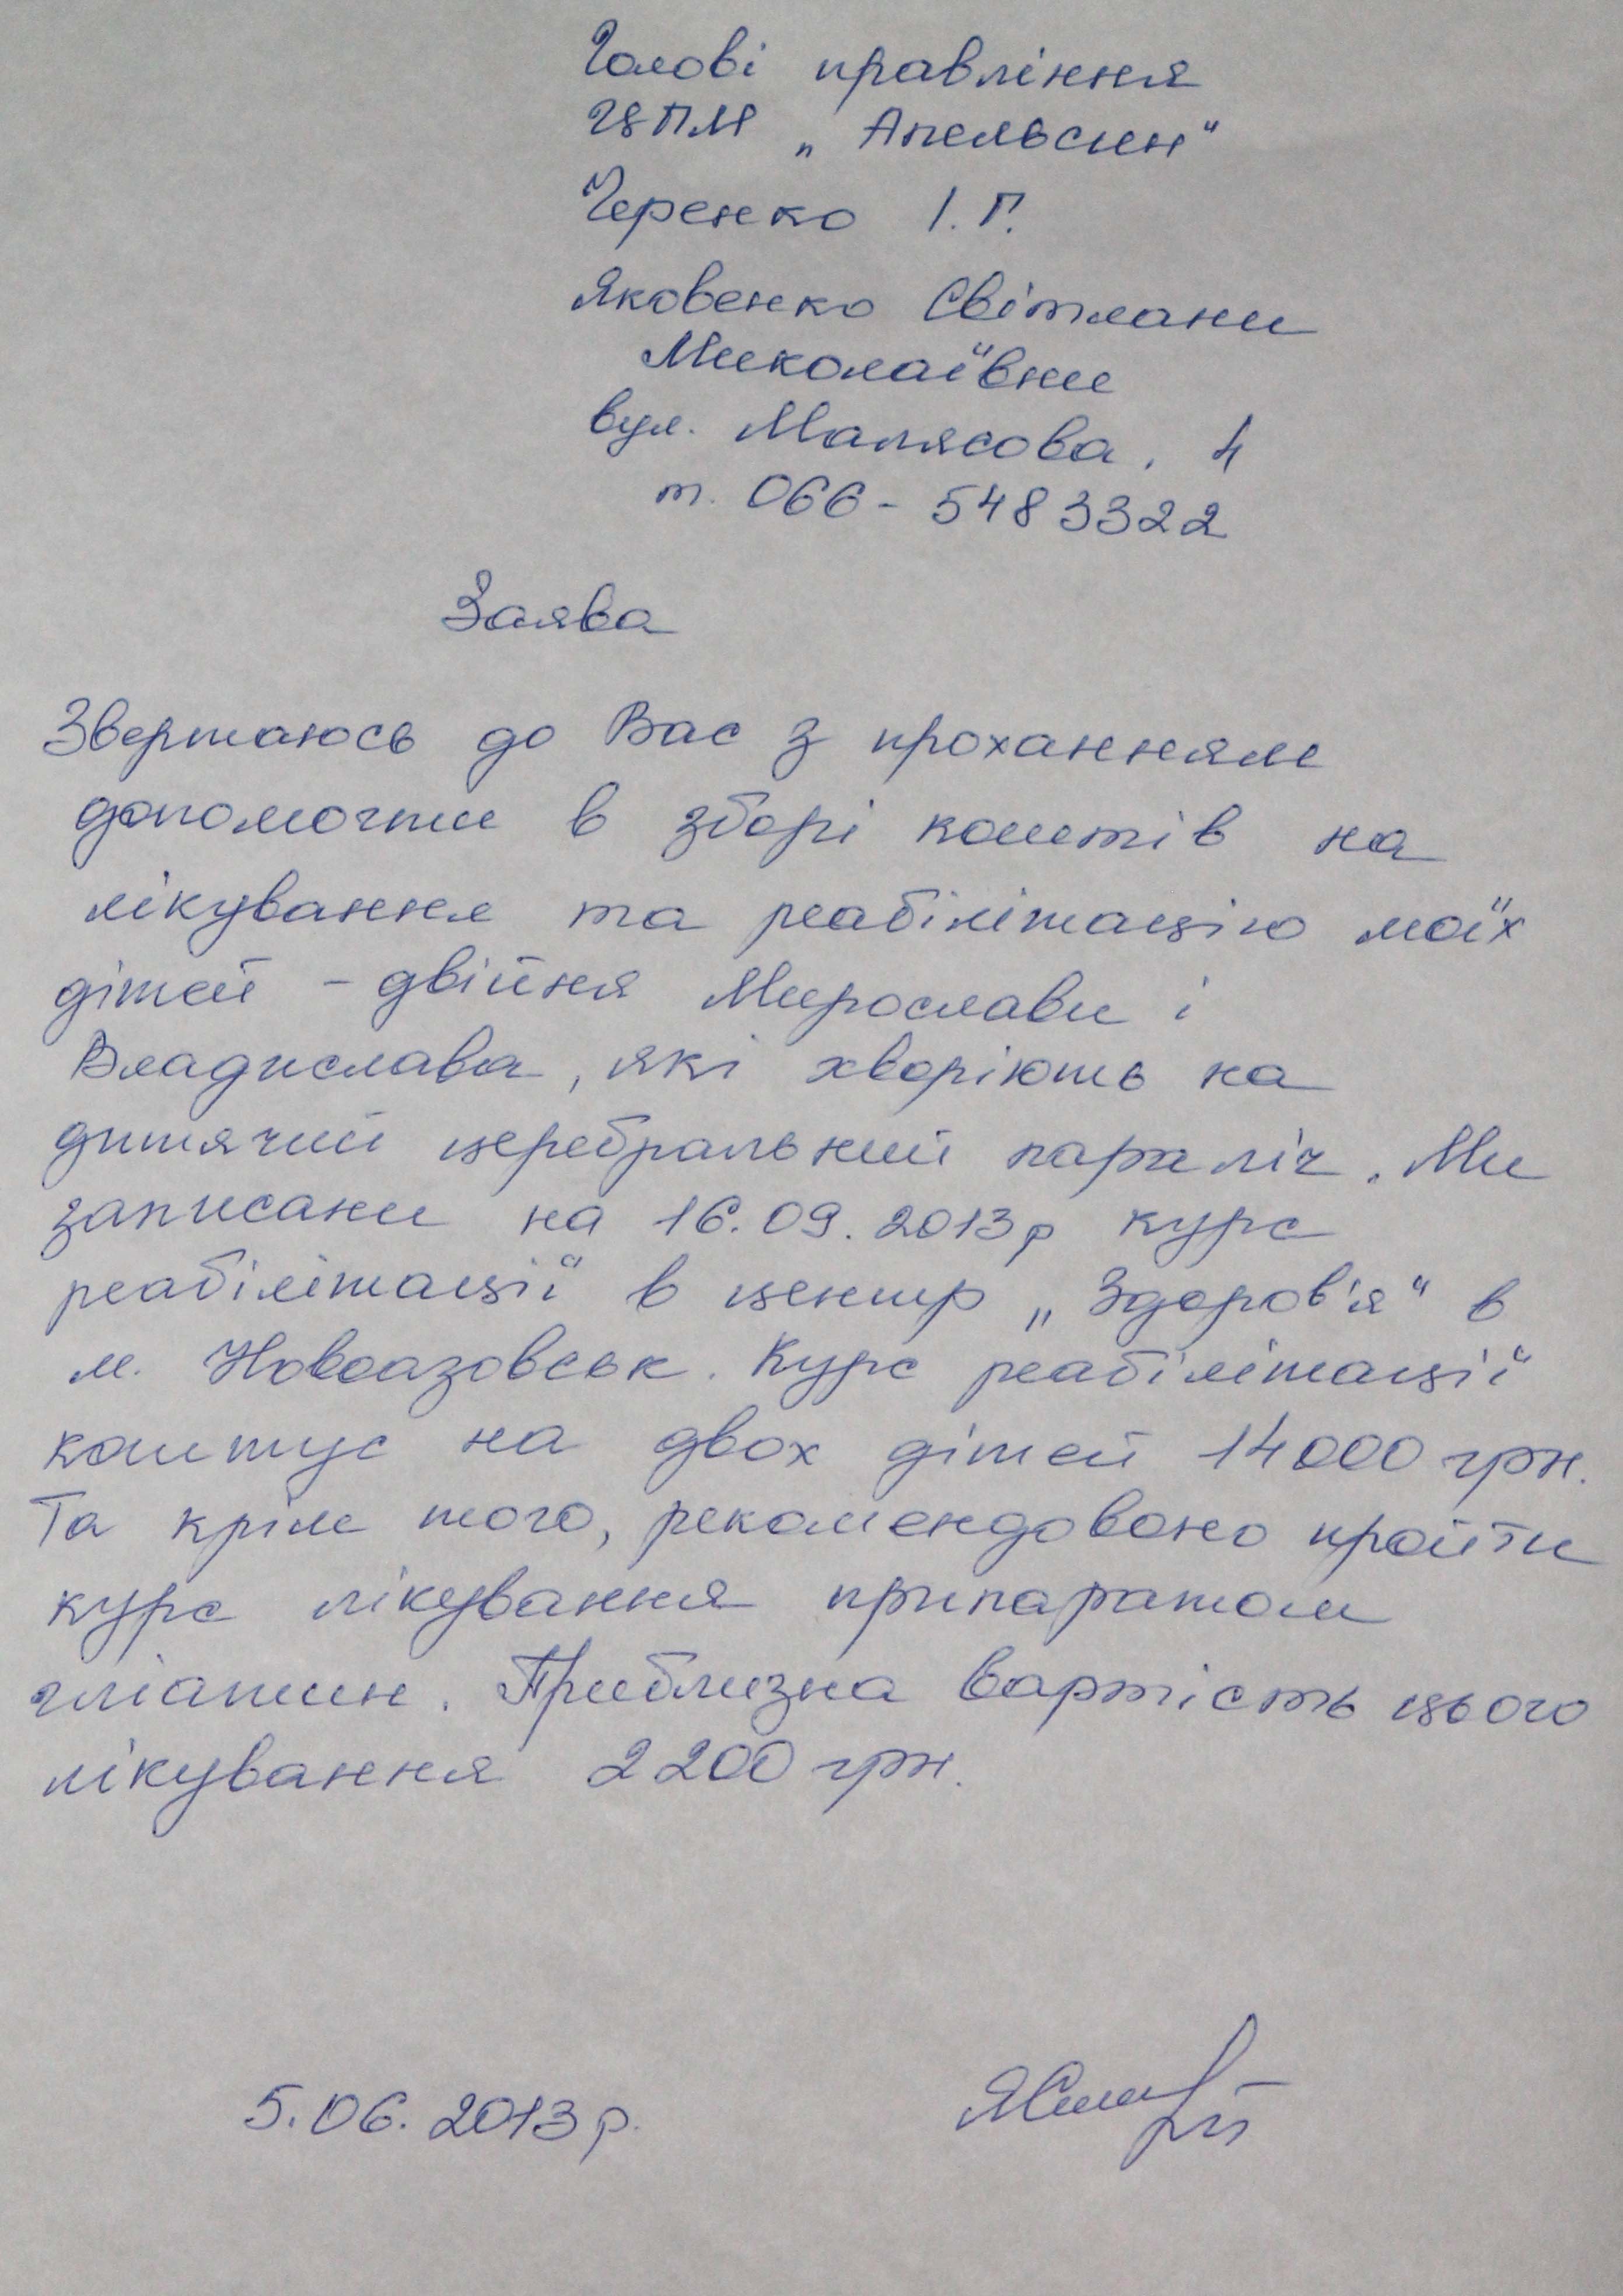 Голові правління
ЦПМ „Апельсин"
Черенко І. Г.
Яковенко Світлани
Миколаївни
вул. Малясова, 4
т. 066-5483322
Заява
Звертаюсь до Вас з проханням
допомогти в зборі коштів на
лікування та реабілітацію моїх
дітей - двійня Мирослави і
Владислава, які хворіють на
дитячий церебральний параліч. Ми
записани на 16.09.2013р курс
реабілітації в центр „Здоров'я" в
м. Новоазовськ. Курс реабілітації
коштує на двох дітей 14000 грн.
Та крім того, рекомендовано пройти
курс лікування припаратом
гліатин. Приблизна вартість цього
лікування 2200 грн.
5.06.2013 р.